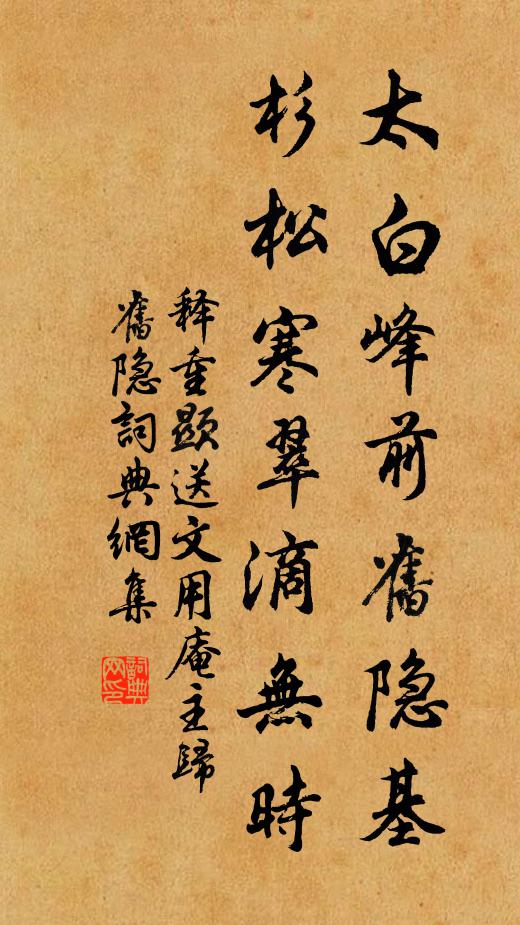 太白峰前舊隐基
杉松寒翠滴無時
释重顯送文用庵主歸
舊隐詞典網集
詞典
网印